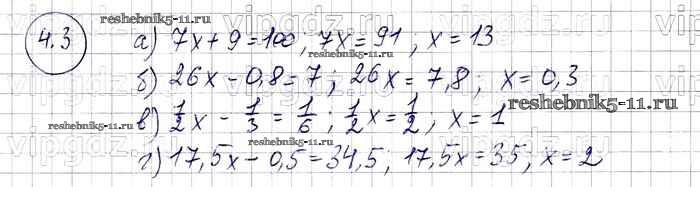 4.3
а) 7x + 9 = 100, 7x = 91; x = 13
б) 26x - 0,8 = 7; 26x = 7,8; x = 0,3
в) 1/2 x - 1/3 = 1/6; 1/2 x = 1/2; x = 1
г) 17,5x - 0,5 = 34,5; 17,5x = 35; x = 2
reshebnik5-11.ru
reshebnik5-11.ru
reshebnik5-11.ru
reshebnik5-11.ru
vipgdz.ru